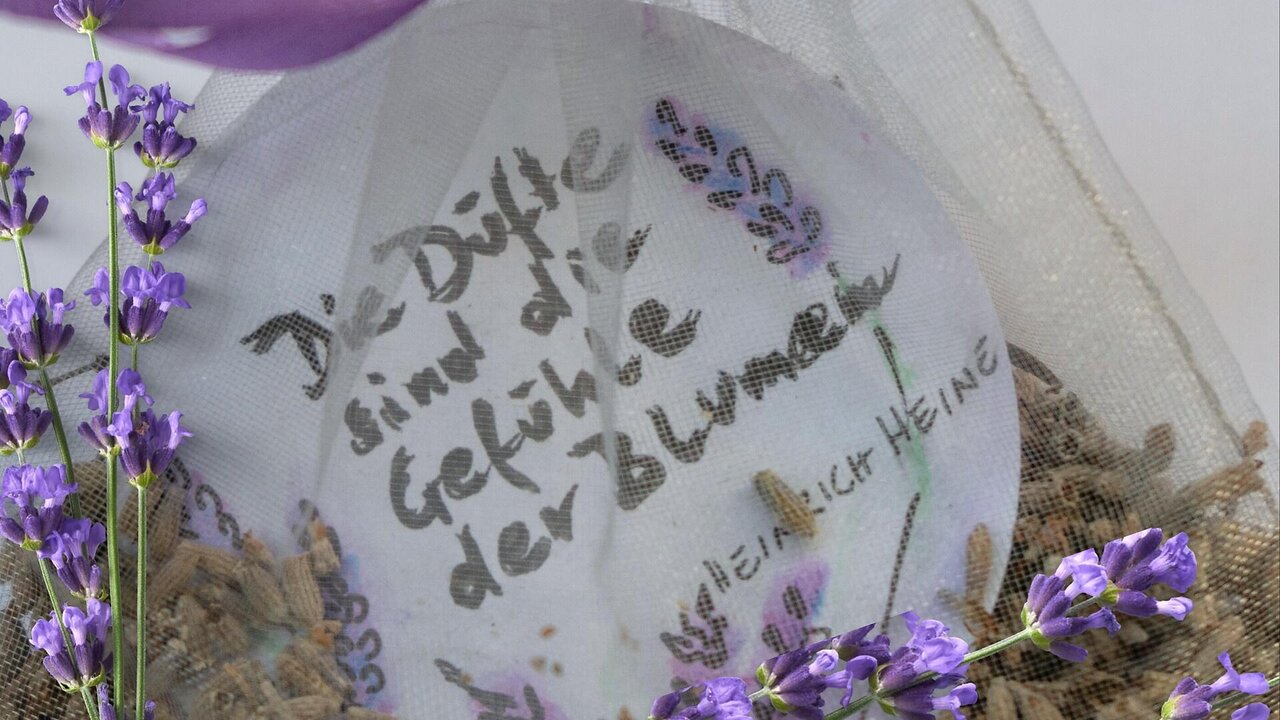 Die Düfte
sind die
Gefühle
der Blumen
HEINRICH HEINE